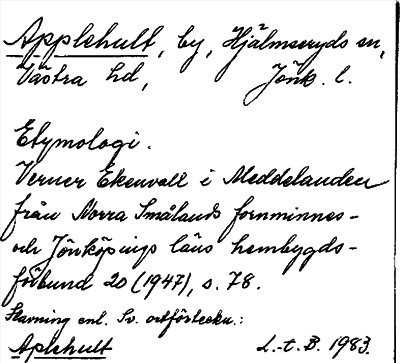 Applehult, by, Hjälmseryds sn,
Västra hd, Jönk. l.
Etymologi.
Verner Ekenvall i Meddelanden
från Norra Smålands fornminnes-
och Jönköpings läns hembygds-
förbund 20 (1947), s. 78.
Stavning enl. Sv. ortförteckn.:
Aplehult L.-t. B. 1983.